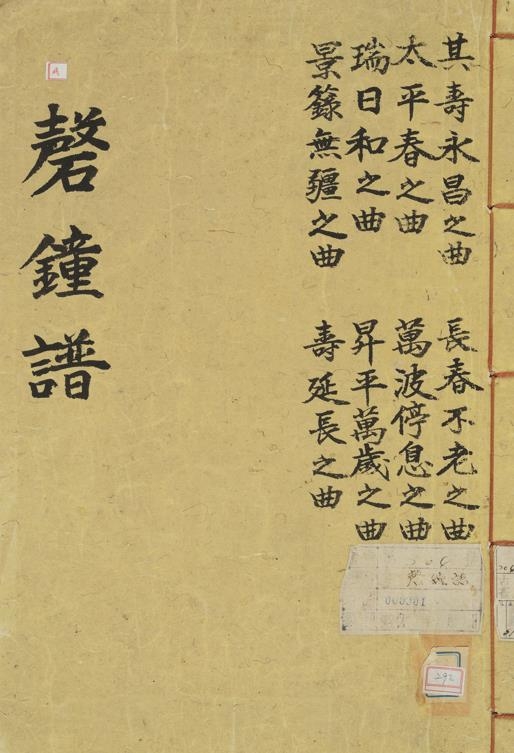 其壽永昌之曲 長春不老之曲
太平春之曲 萬波停息之曲
瑞日和之曲 昇平萬歲之曲
景籙無疆之曲 壽延長之曲
磬鐘譜
292